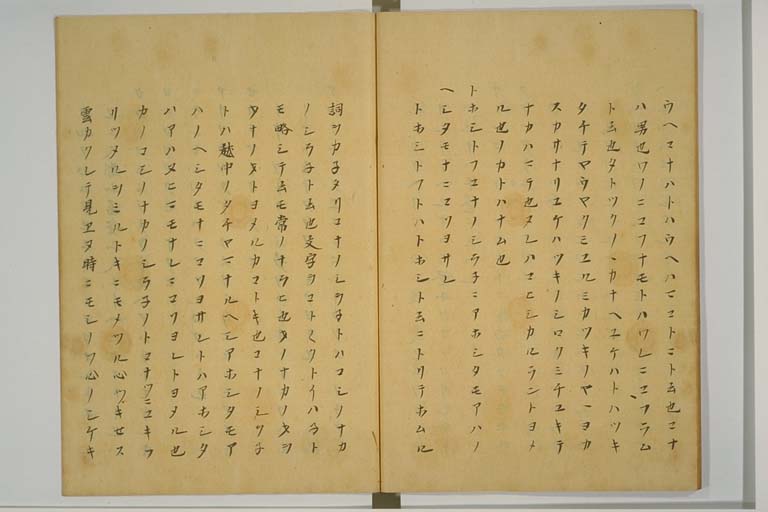 ウヘコナハトハウヘハマコトニト云也コナ
ハ男也ワノニコフナモトハワレニコフラム
ト云也タトツクノヽカナヘユケハトハツキ
タチテヤウヤクミユルミカツキノヤヽヨカ
スカサナリユケハツキノシロクミチユキテ
ナカハニテ也ヌレハコヒシカルラントヨメ
ル也ノカトハナム也
ヘシタモナニコソヨサレ
トホシトフコナノシラ子ニアホシタモアハノ
トホシトフトハトホシト云ニトリテホムル
詞ヲカ子タリコナノシラ子トハコシノナカ
ノシラ子ト云也文字ヲコトクツトイハヲト
モ略シテ云モ常ノナラヒ也タノナカノヲシ
タナノタトヨメルカコトキ也コナノシラ子
トハ越中ノタチヤマナルヘシアホシタモア
ハノヘシタモナニコソヨサレトハアホシタ
ハアハヌヒニモナレニコソヨレトヨメル也
カノコシノナカノシラ子ノトコナツニユキフ
リツメルヲミルトキニモメツル心ツキセス
雲カクレテ見エヌ時ニモシノフ心ノシケキ